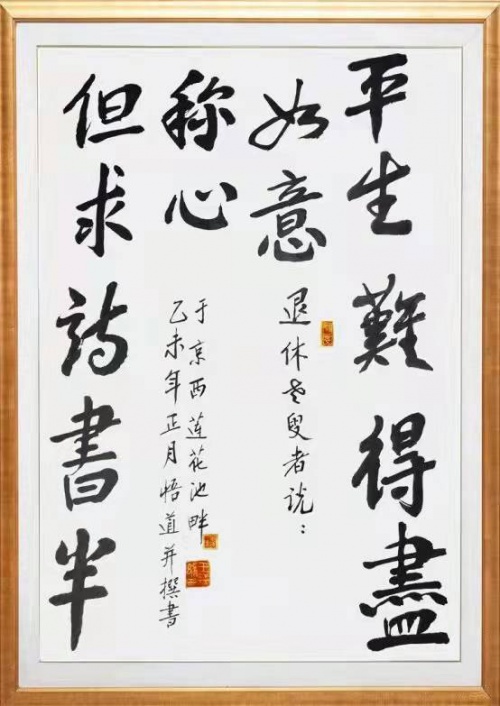 平生難得盡
如意
退休老叟者说：
但求詩書半
称心
乙未年正月悟道并撰書
于京西蓮花池畔